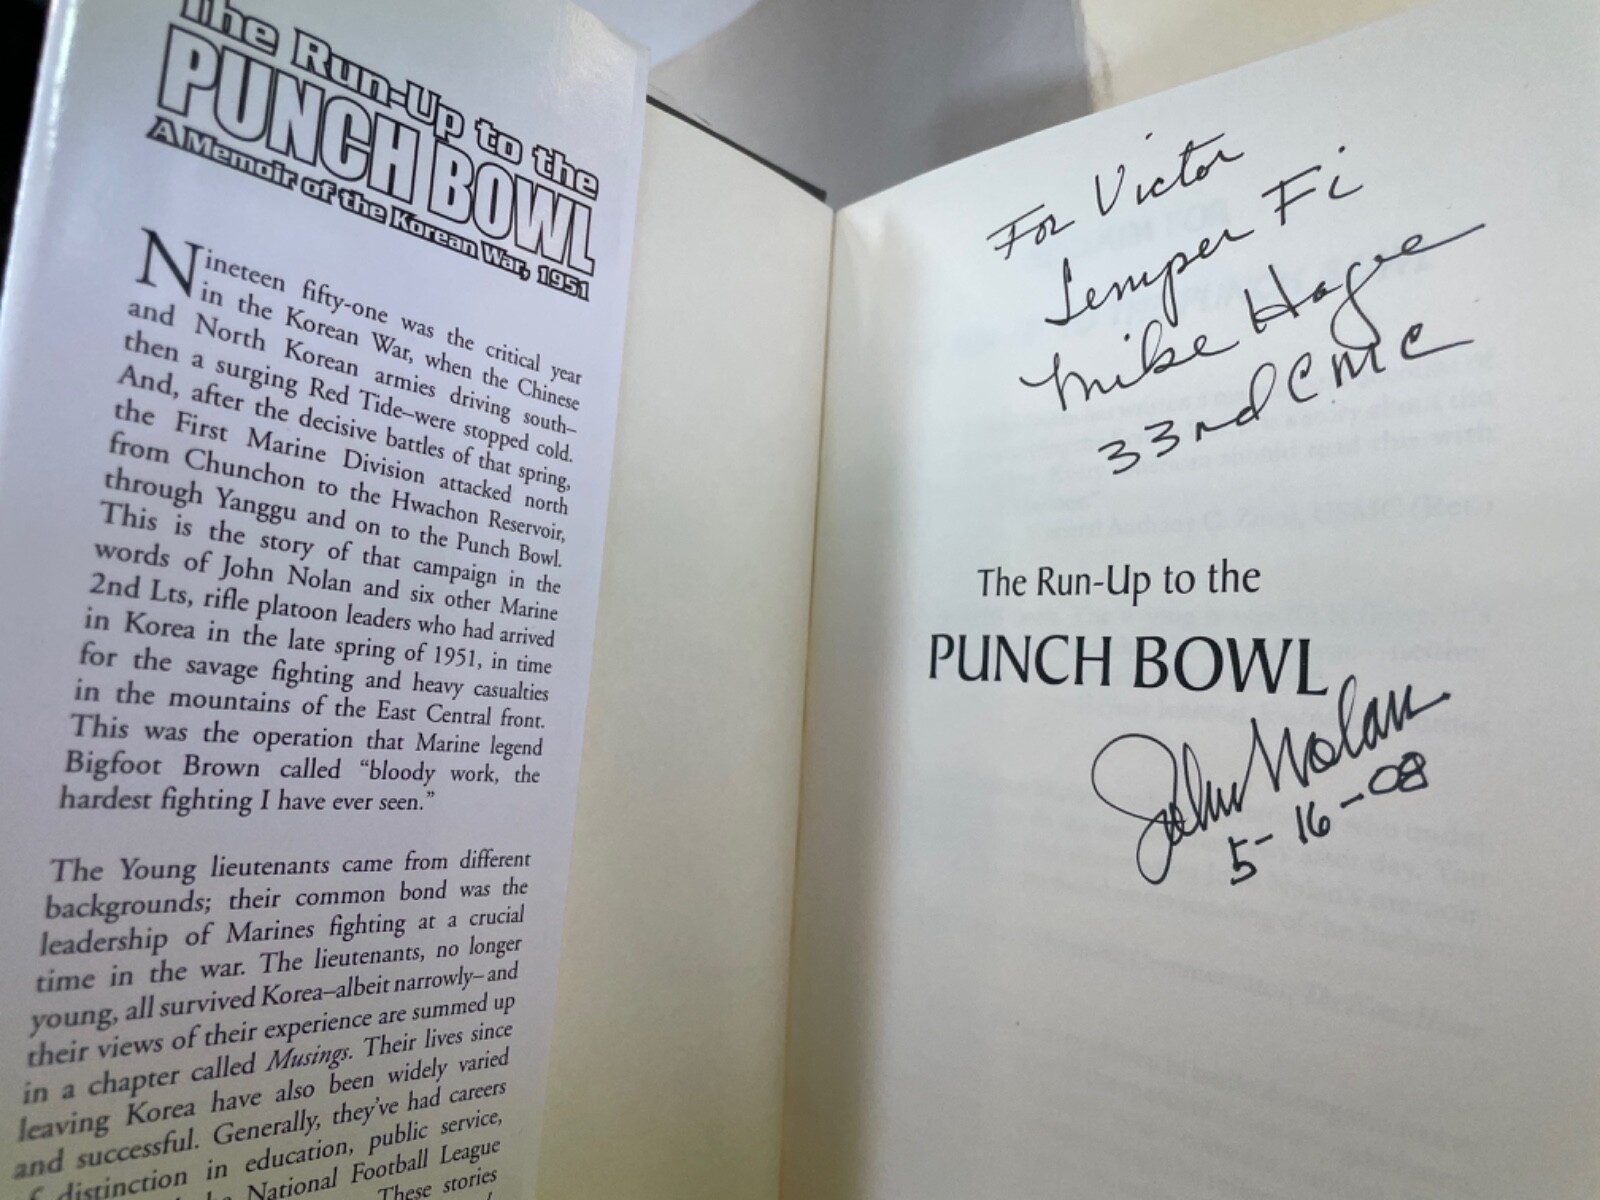 The Run-Up to the
PUNCH BOWL
A Memoir of the Korean War, 1951
Nineteen fifty-one was the critical year
in the Korean War, when the Chinese
and North Korean armies driving south–
then a surging Red Tide–were stopped cold.
And, after the decisive battles of that spring,
the First Marine Division attacked north
from Chunchon to the Hwachon Reservoir,
through Yanggu and on to the Punch Bowl.
This is the story of that campaign in the
words of John Nolan and six other Marine
2nd Lts, rifle platoon leaders who had arrived
in Korea in the late spring of 1951, in time
for the savage fighting and heavy casualties
in the mountains of the East Central front.
This was the operation that Marine legend
Bigfoot Brown called “bloody work, the
hardest fighting I have ever seen.”
The Young lieutenants came from different
backgrounds; their common bond was the
leadership of Marines fighting at a crucial
time in the war. The lieutenants, no longer
young, all survived Korea–albeit narrowly–and
their views of their experience are summed up
in a chapter called Musings. Their lives since
leaving Korea have also been widely varied
and successful. Generally, they’ve had careers
distinction in education, public service,
National Football League
These stories
For Victor
Semper Fi
Mike Hagee
33rd CMC
The Run-Up to the
PUNCH BOWL
John Nolan
5-16-08